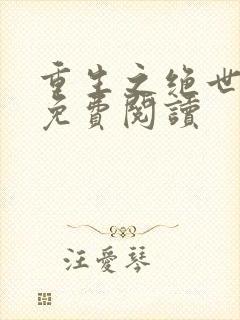 重生之绝世
免費閱讀
汪愛琴